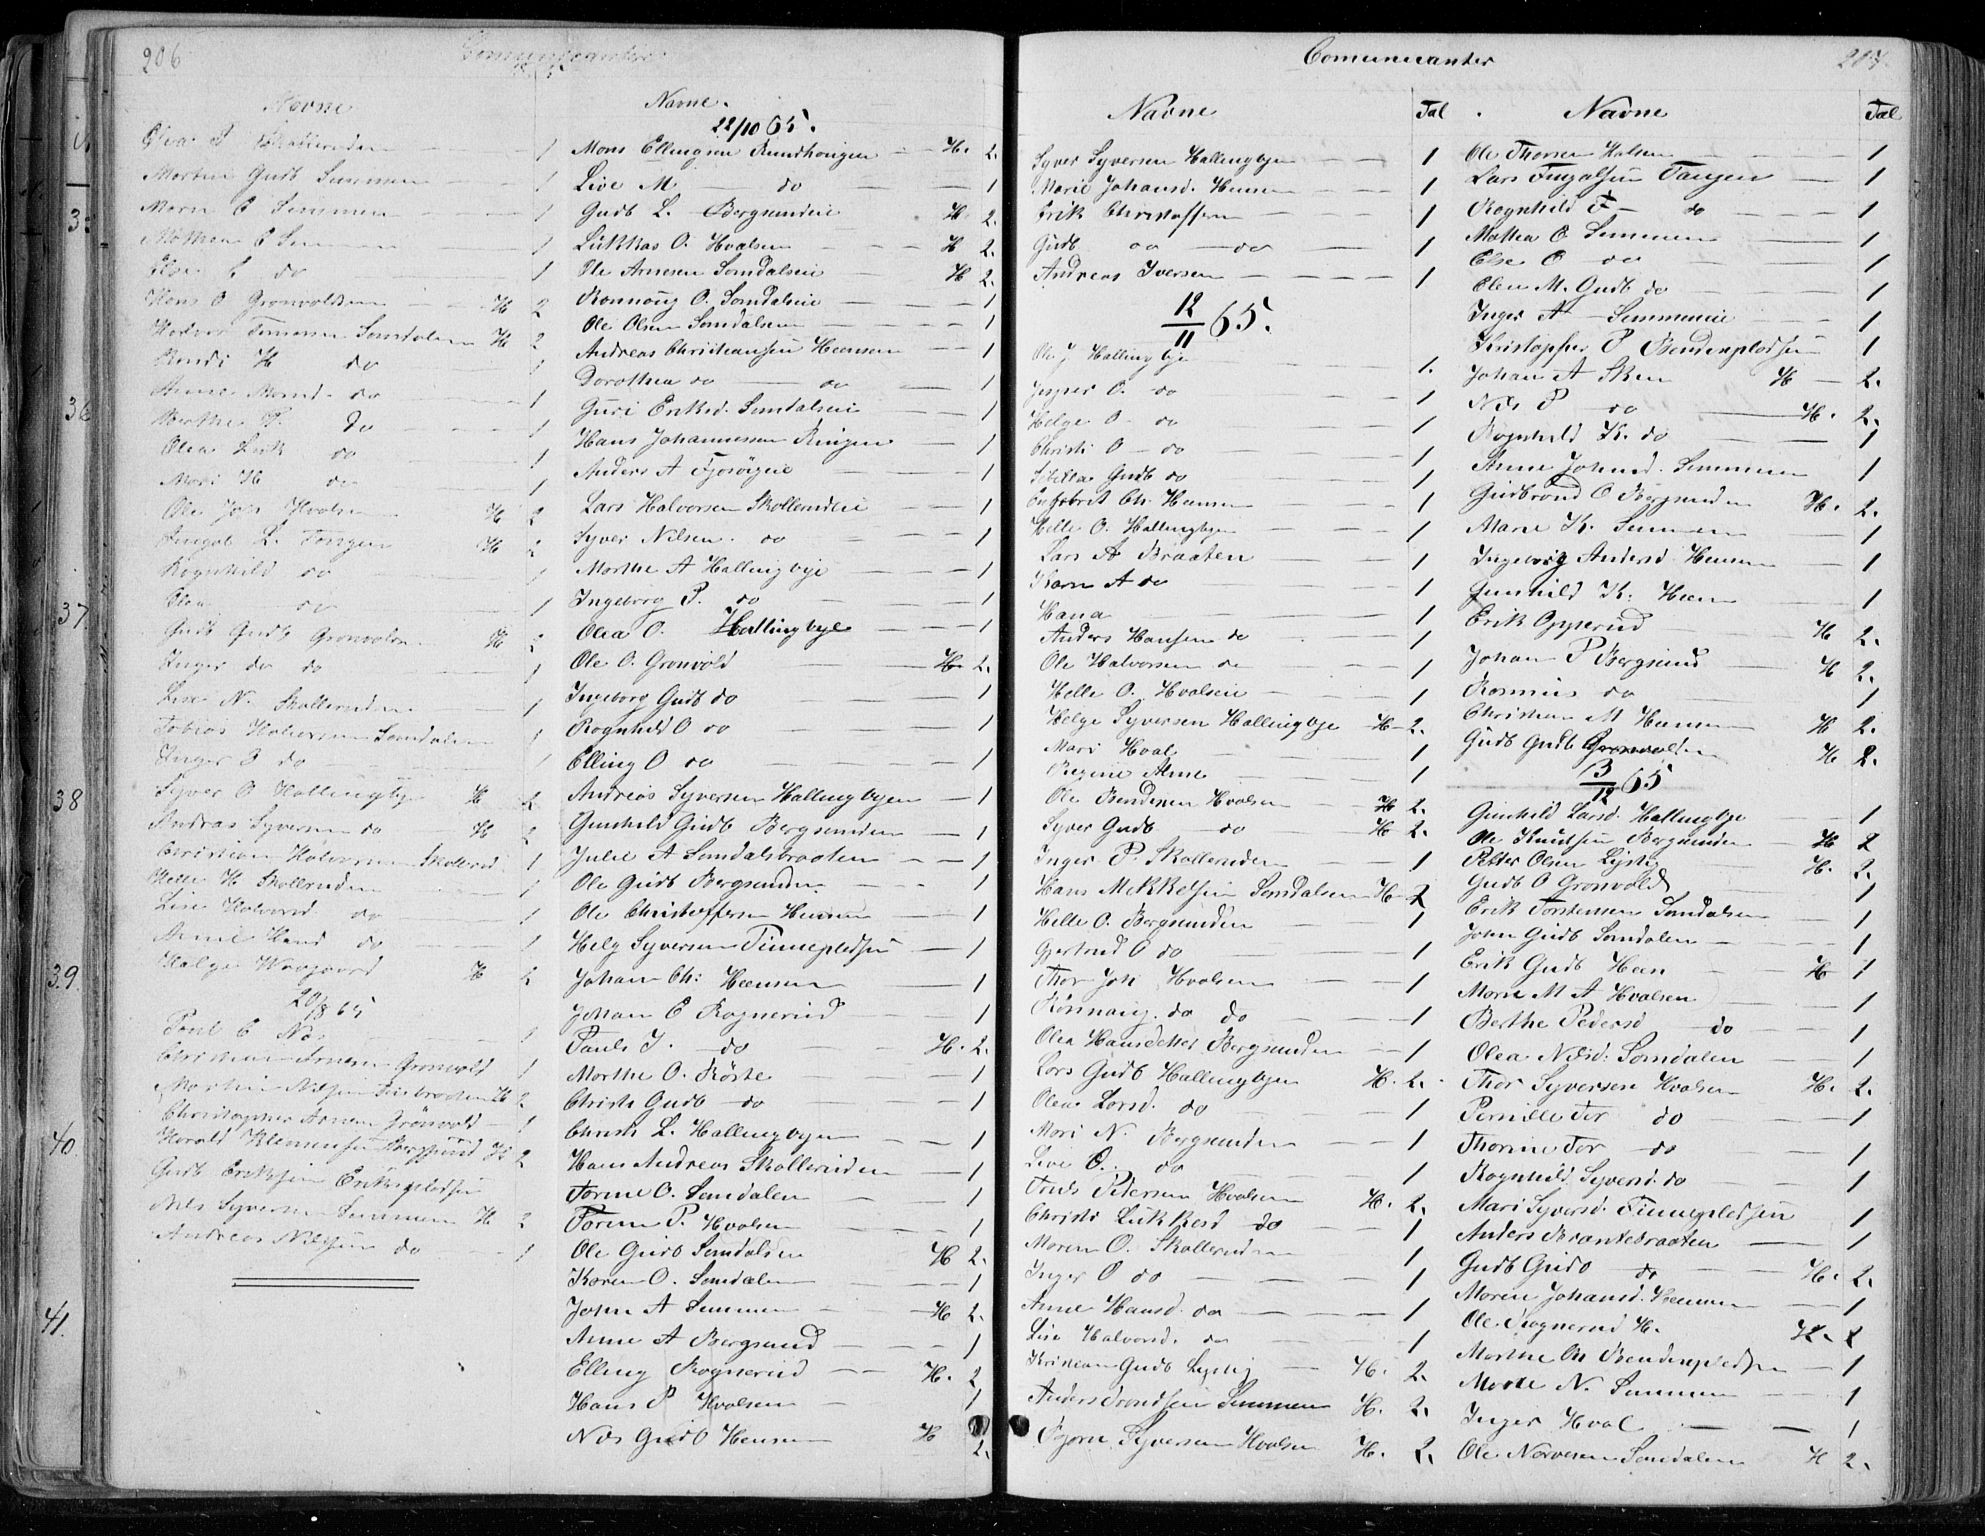 206
Comunicanter
Navne
Olea P Skolleruden 1
Morten Gudb Semmen 1
Maren O Semmen 1
Mathea O Semmen 1
Else O do 1
Hans O Gronvoldsen H 2
Halvor Somdalen H 2
Randi H do 1
Anne do 1
Marthe P. do 1
Olea Erik do 1
Mari H do 1
Ole Joh Hvalsen H 2
Fingal L. Tangen H 2
Rognhild do 1
Olea do 1
Gudb Gudb Gronvolden H 2
Inger do do 1
Live N. Skolleruden 1
Tobias Halvorsen Somdalen 1
Inger do 1
Syver O Hallingbye H 2
Andreas Syversen do H 2
Christian Halvorsen Skollerud 1
Helle H Skolleruden 1
Lise Halvorsd do 1
Anne do 1
Helge Waagaard H 2
20/8 65
Poul O 1
Christian Arnesen Gronvold 1
Martin Nilsen H 2
Christopher Arnesen Grönvold 1
Harald Klemmetsen Bergsund H 2
Gudb Eriksen Eriksplodsen
Nils Syversen Semmen H 2
Andreas Nilsen do 1
Navne.
22/10 65.
Mons Ellingsen Rundhougen H. 2.
Live M. do 1
Gudb L. Bergsunden H. 2.
Lukkas O. Hvalsen H 2.
Ole Arnesen Somdalen H 2.
Ronnoug O. Somdalen 1
Ole Olsen Somdalen 1
Andreas Christiansen Heensen 1
Dorothea do do 1
Guri Eriksd. Somdalen 1
Hans Johannessen Ringen 1
Anders A 1
Lars Halvorsen Skollerudeie 1
Syver Nilsen. do 1
Marthe A Hallingbye 1
Ingeborg P. do 1
Olea O. Hallingbye 1
Ole O. Gronvold H. 2.
Ingeborg Gudb do 1
Rognhild O do 1
Elling O do 1
Andreas Syversen Hallingbyen 1
Gunhild Gudb Bergsunden 1
Julie A Somdalsbraaten 1
Ole Gudb Bergsunden 1
Ole Christoffersen Heensen 1
Helg Syversen Finneplodsen 1
Johan Ch: Heensen 1
Johan O Rognerud 1
Pauls J. do H. 2.
Marthe O. Röste 1
Christi Gudb do 1
Christi L. Hallingbyen 1
Hans Andreas Skolleruden 1
Torine O. Somdalen 1
Torine P. Hvalsen 1
Ole Gudb Somdalen H 2.
Karen O. Somdalen 1
John A Semmen H 2.
Anne A Bergsund 1
Elling Rognerud H. 2
Hans P Hvalsen 1
Nils Gudb Heensen H 2.
Comunicanter
207
Navne Tal
Syver Syversen Hallingbyen 1
Marie Johansd. Heensen 1
Erik Christoffersen 1
Gudb do do 1
Andreas Iversen 1
12/11 65.
Ole J Hallingbye 1.
Jesper O. do 1
Helge O do 1
Christi O do 1
Sibilla Gudb do 1
Engebret Ch. Heensen 1
Helle O. Hallingbyen 1
Lars A Braaten 1
Karn A do 1
Hana 1
Anders Hansen do 1
Ole Halvorsen do 1
Helle O. Hvalseie 1
Helge Syversen Hallingbye H 2.
Mari Hval 1
Regine Arne 1
Ole Bendixsen Hvalsen H 2.
Syver Gudb do H 2.
Inger P. Skolleruden 1
Hans Mikkelsen Somdalen H 2
Helle O. Bergsunden 1
Gjertrud O do 1
Thor Joh Hvalsen 1
Rönnaug do do 1
Olea Hansdatter Bergsunden 1
Lars Gudb Hallingbyen H. 2.
Olea Larsd. do 1
Mari N. Bergsunden 1
Live O. do 1
Truls Pedersen Hvalsen H. 2.
Christi Lukkasd do 1
Maren O. Skolleruden 1
Inger O do 1
Anne Hansd. do 1
Lise Halvorsd. do 1
Kristian Gudb Lystig H. 2.
Anders Trondsen Semmen H. 2.
Bjorn Syversen Hvalsen H. 2.
Navne Tal
Ole Thorsen Halsen 1
Lars Fingalsen Tangen 1
Rognhild F do 1
Mathea O Semmen 1
Else O do 1
Olea M. Gudb do 1
Inger A Semmeneie 1
Kristopher P Bendenplodsen 1
Johan A Sken H 2.
Nils P do H. 2.
Rognhild K. do 1
Anne Johnsd. Semmen 1
Gudbrand O Bergsunden H. 2.
Maren K. Semmen 1
Ingeborg Andersd Heensen 1
Gunhild K. Heen 1
Erik Opperud H 2.
Johan P Bergsund H 2.
do 1
Christian M Heensen H 2.
Gudb Gudb Gronvolden H 2.
3/12 65
Gunhild Larsd. Hallingbye 1
Ole Knudsen Bergsunden H 2
Petter Olsen Lystig H. 2.
Gudb O Gronvold 1
Erik Torstensen Somdalen 1
John Gudb Somdalen 1
Erik Gudb Heen H 1
Maren M A Hvalsen 1
Berthe Pedersd do 1
Olea Nilsd. Somdalen 1
Thor Syversen Hvalsen H. 2.
Pernille Tor do 1
Thorine Tor do 1
Rognhild Syversd. do 1
Mari Syversd. Finneplodsen 1
Anders Brantebraaten 1
Gudb Gudb do H. 2.
Maren Johansd. Heensen 1
Ole Rognerud H. H. 2
Marthe M Bendenplodsen 1
Marte N. Semmen 1
Inger Hval 1
Ole Narvesen Somdalen H 2.
36
37.
38
39
40.
41.